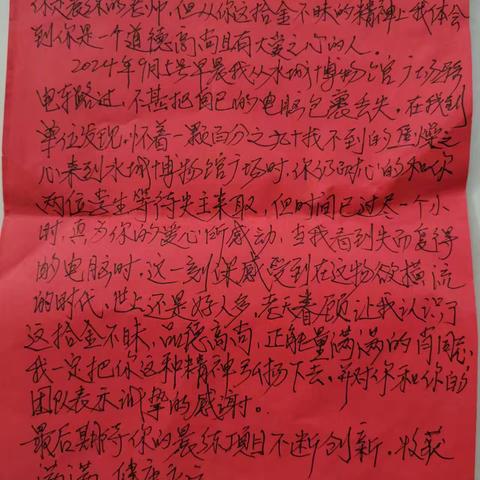 晨练的老师，但从你这拾金不昧的精神上我体会
到你是一个道德高尚且有大爱之心的人。
2024年9月5号早晨我从水城博物馆广场骑
电车路过，不甚把自己的电脑包裹丢失。在我到
单位发现，怀着一颗百分之九十找不到的
心来到水城博物馆广场时，你仍耐心的和你
两位学生等待失主来取，但时间已过尽一个小
时，真为你的爱心所感动，当我看到失而复得
的电脑时，这一刻深感受到在这物欲横流
的时代，世上还是好人多，老天眷顾让我认识了
这拾金不昧，品德高尚，正能量满满的肖
我一定把你这种精神弘扬下去。并对你和你的
团队表示诚挚的感谢。
最后期待你的晨练项目不断创新，收获
满满，健康